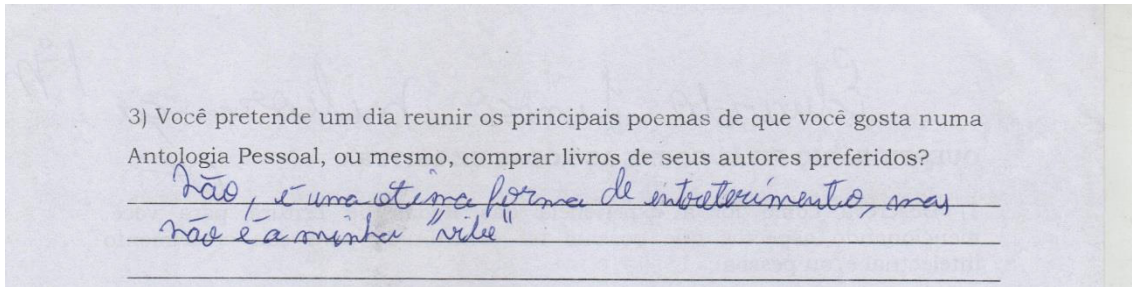 3) Você pretende um dia reunir os principais poemas de que você gosta numa
Antologia Pessoal, ou mesmo, comprar livros de seus autores preferidos?
Não, é uma otima forma de entreterimento, mas
não é a minha "vibe"